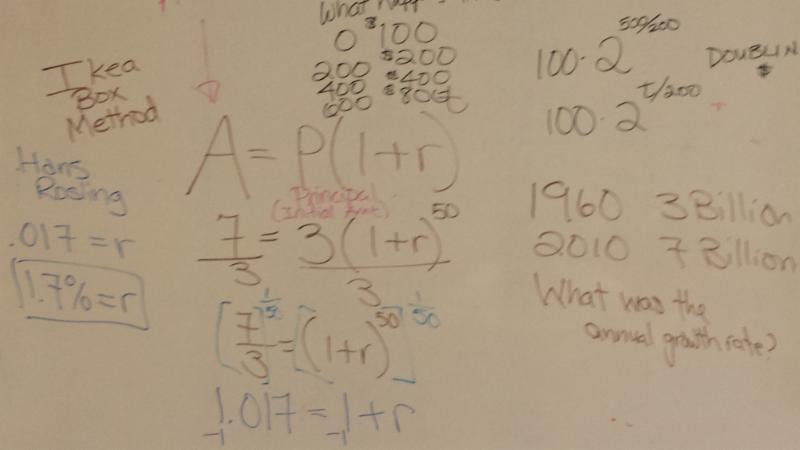 What happ
0 $100
200 $200
400 $400
600 $800
100·2^500/200
DOUBLIN
$
100·2^t/200
Ikea
Box
Method
A = P(1+r)^t
Principal
(Initial Amt)
Hans
Rosling
.017 = r
1.7% = r
7/3 = 3(1+r)^50/3
[7/3]^1/50 = [(1+r)^50]^1/50
1.017 = 1+r
-1 -1
1960 3 Billion
2010 7 Billion
What was the
annual growth rate?